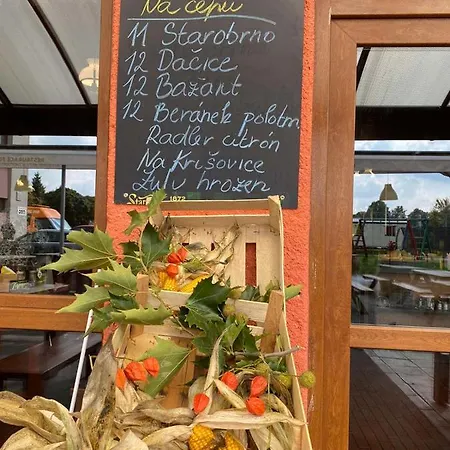 Na čepu
11 Starobrno
12 Dačice
12 Bažant
12 Beránek polotm.
Radler citrón
Na Krišovice
Zulu hrozen
Star
1872